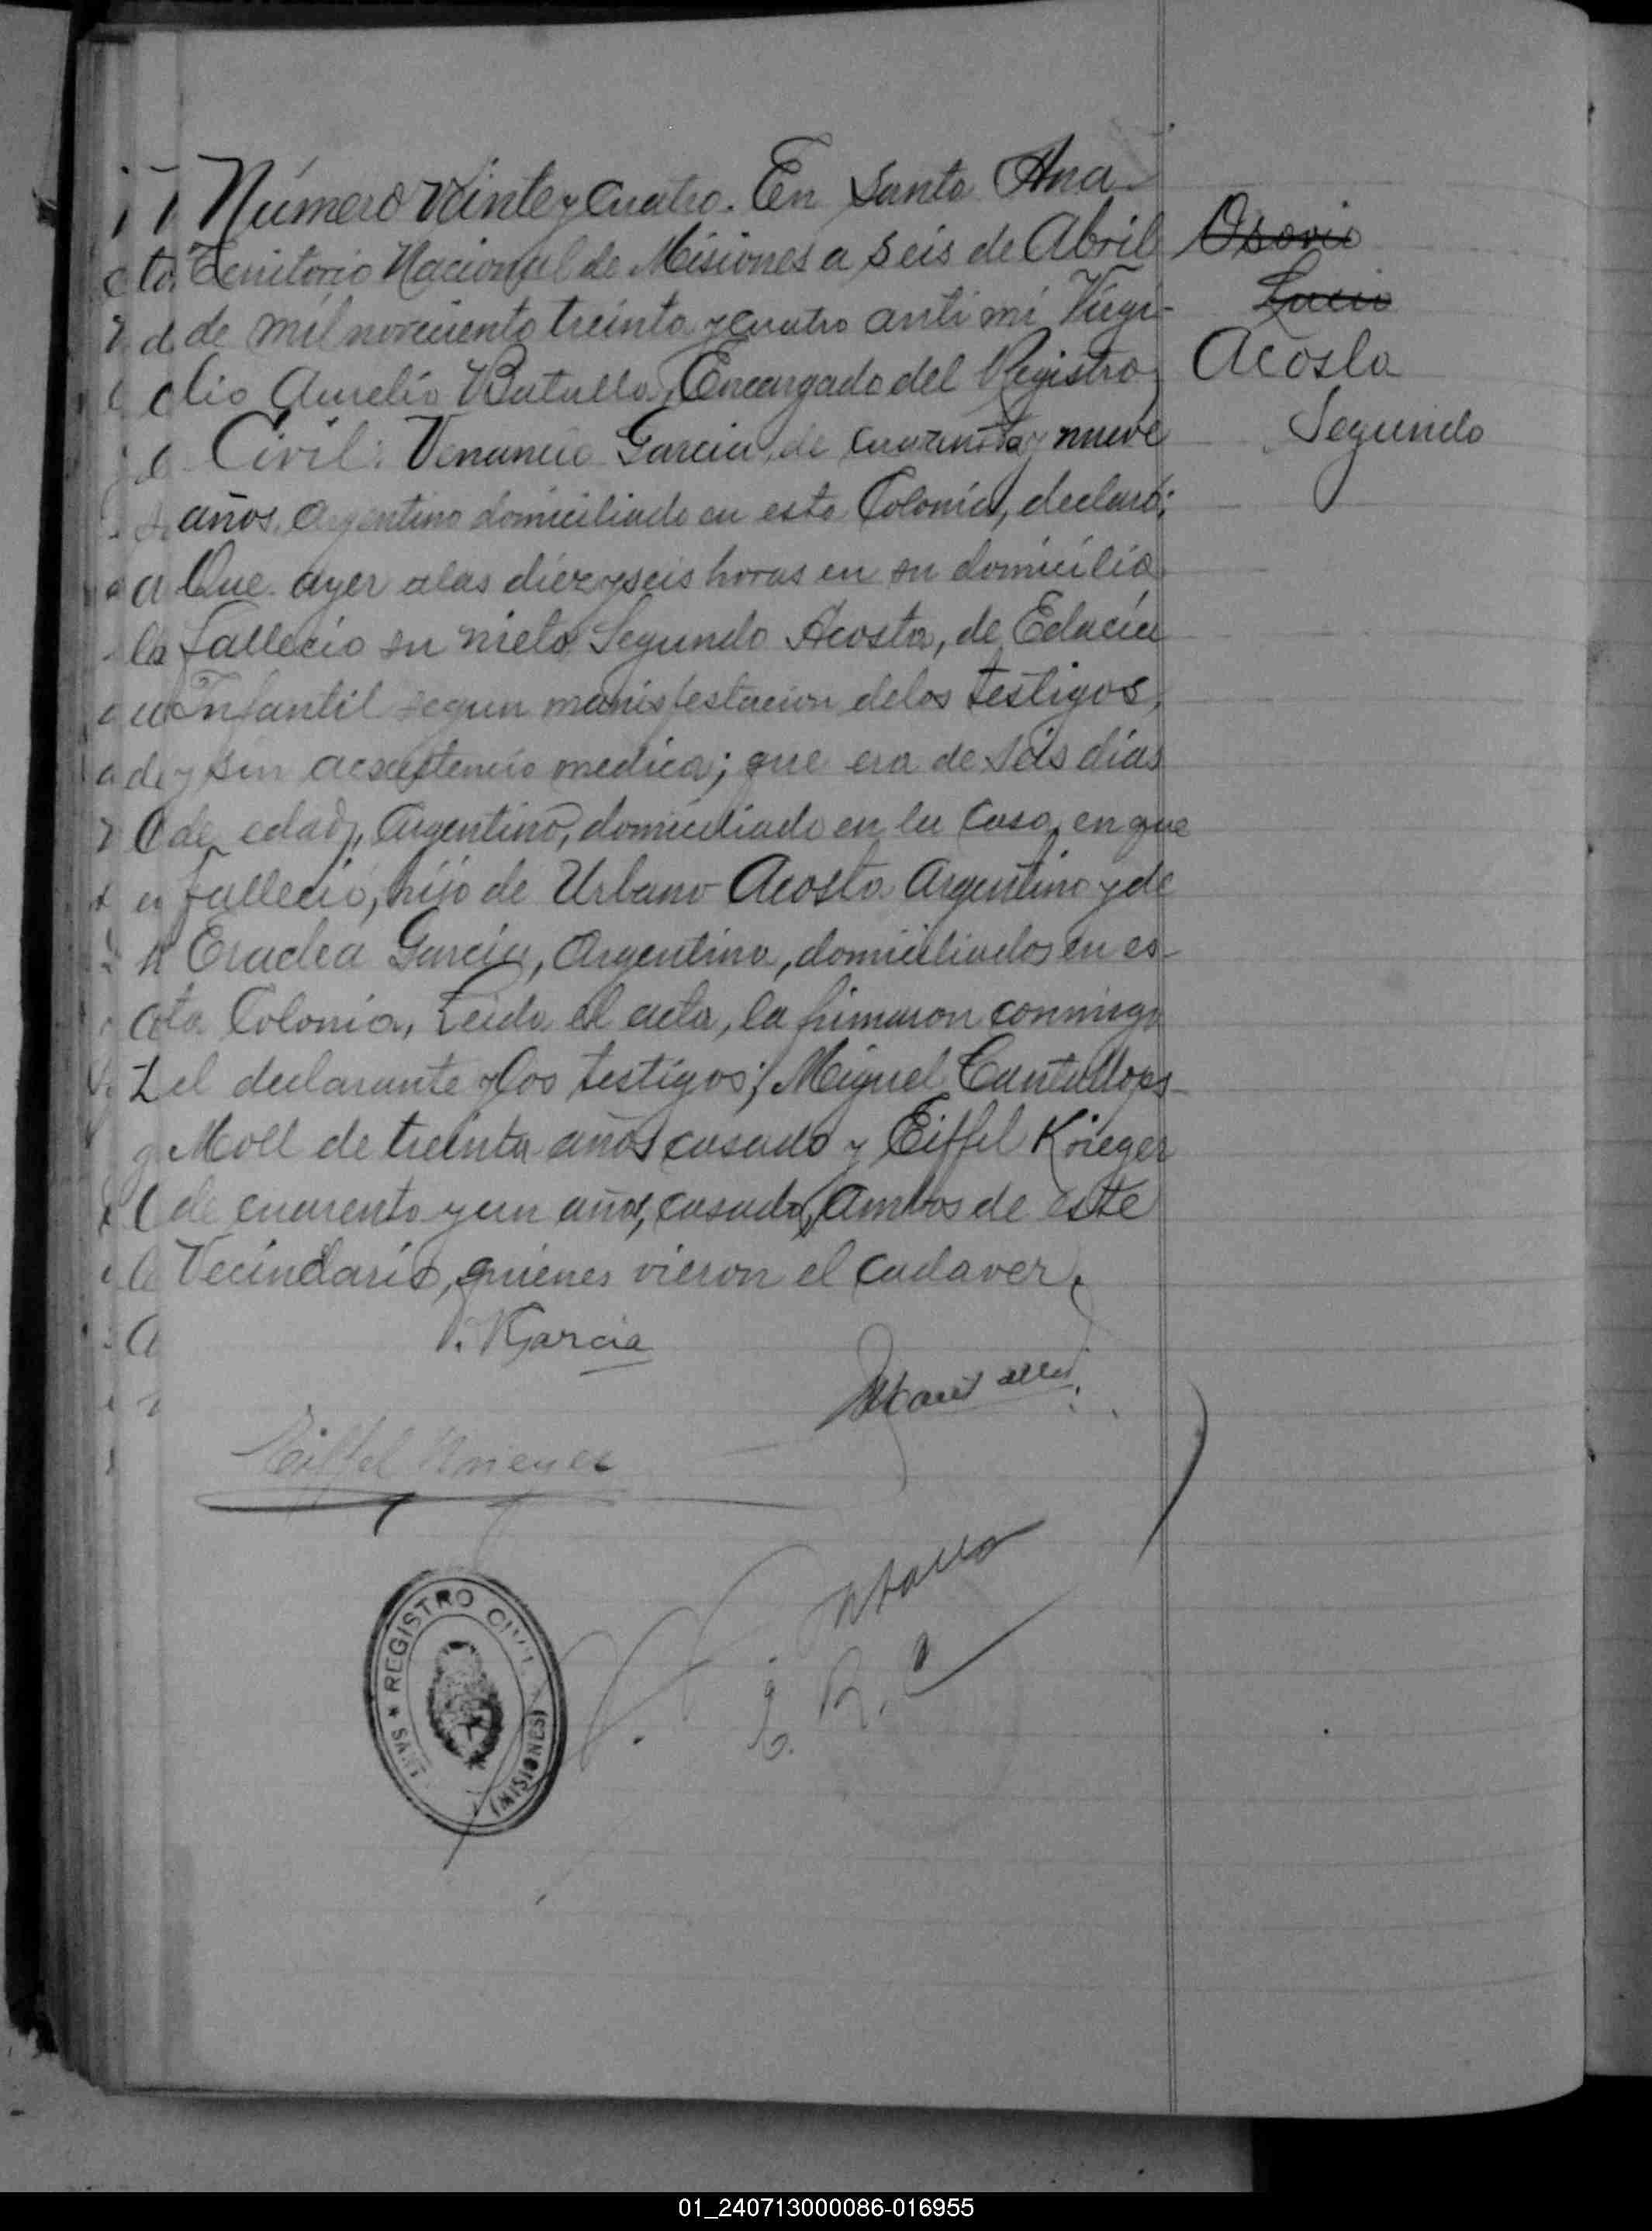 Número Veinte y Cuatro. En Santa Ana
Territorio Nacional de Misiones a seis de Abril
de mil noveciento treinta y cuatro anti mi Virgi-
lio Aurelio Batalla, Encargado del Registro
Civil: Venancio Garcia, de cuarenta y nueve
años, Argentino domiciliado en esta Colonia, declaró:
Que ayer a las diez y seis horas en su domicilio
fallecio su nieto Segundo Acosta, de Eclacia
Infantil segun manisfestacion de los testigos,
y sin acsistencia medica; que era de seis días
de edad, Argentino, domiciliado en la casa, en que
fallecio, hijo de Urbano Acosta Argentino y de
Eraclea Garcia, Argentina, domiciliados en es-
ta Colonia, Leida el acta, la firmaron conmigo
el declarante y los testigos; Miguel Cantallops
Moll de treinta años casado y Eiffel Krieger
de cuarenta y un años, casado, Ambos de este
Vecindario, quienes vieron el cadaver.
Osorio
Lucio
Acosta
Segundo
V. Garcia
Eiffel Krieger
E. R. C
REGISTRO CIVIL
SANT
(MISIONES)
01_240713000086-016955